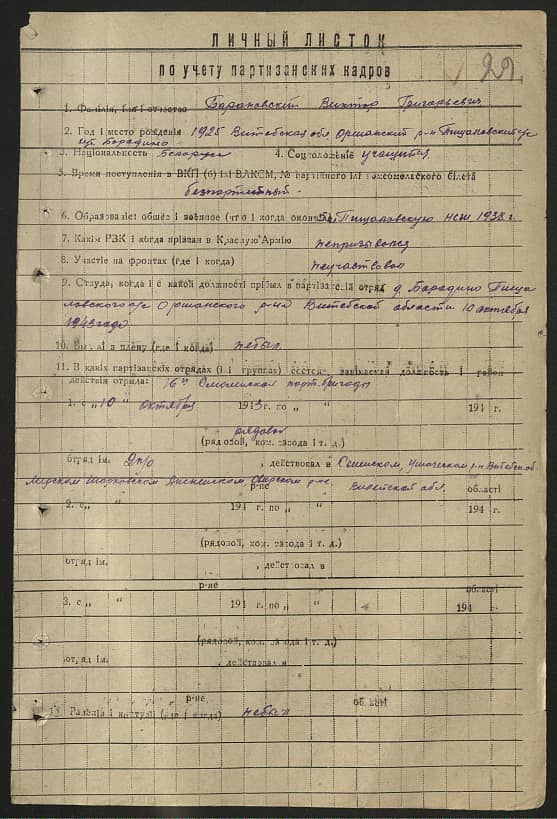 ЛИЧНЫЙ ЛИСТОК
по учету партизанских кадров
22.
1. Фамілія, імя і отчество Барановский Виктор Григорьевич
2. Год і место рождения 1925 Витебская обл Оршанский р-н Пищаловский с/с
д. Бородино
3. Національность Беларус 4. Соцположеніе учащийся
5. Время поступления в ВКП (б) ілі ВЛКСМ, № партийного ілі комсомольского білета
безпартийный.
6. Образованіе: общее і военное (что і когда окончіл) Пищаловскую НСШ 1938 г.
7. Какім РЗК і когда прізван в Красную Армію непризывался
8. Участіе на фронтах (где і когда) неучаствовал
9. Откуда, когда і с какой должності прібыл в партізанскій отряд д. Бородино Пища
ловского с/с Оршанского р-на Витебской области 10 октября
1943 года
10. Был лі в плену (где і когда) небыл
11. В какіх партізанскіх отрядах (і і группах) состоял, занімаемая должность і район
действія отряда: 16я Смоленская парт. бригада
1. с „10“ октября 1943 г. по „ “ 194 г.
рядовой
(рядовой, ком. взвода і т. д.)
отряд ім. , действовал в Сененском, Ушачском р-н Витебск об.
Мерском Шарковском Диснеиском, р-не, Вилейской обл. області
2. с „ “ 194 г. по „ “ 194 г.
(рядовой, ком. взвода і т. д.)
отряд ім. , действовал в
р-не області
3. с „ “ 194 г. по „ “ 194 г.
(рядовой, ком. взвода і т. д.)
отряд ім. , действовал в
р-не, області
Ранения і контузіі (где і когда) небыл